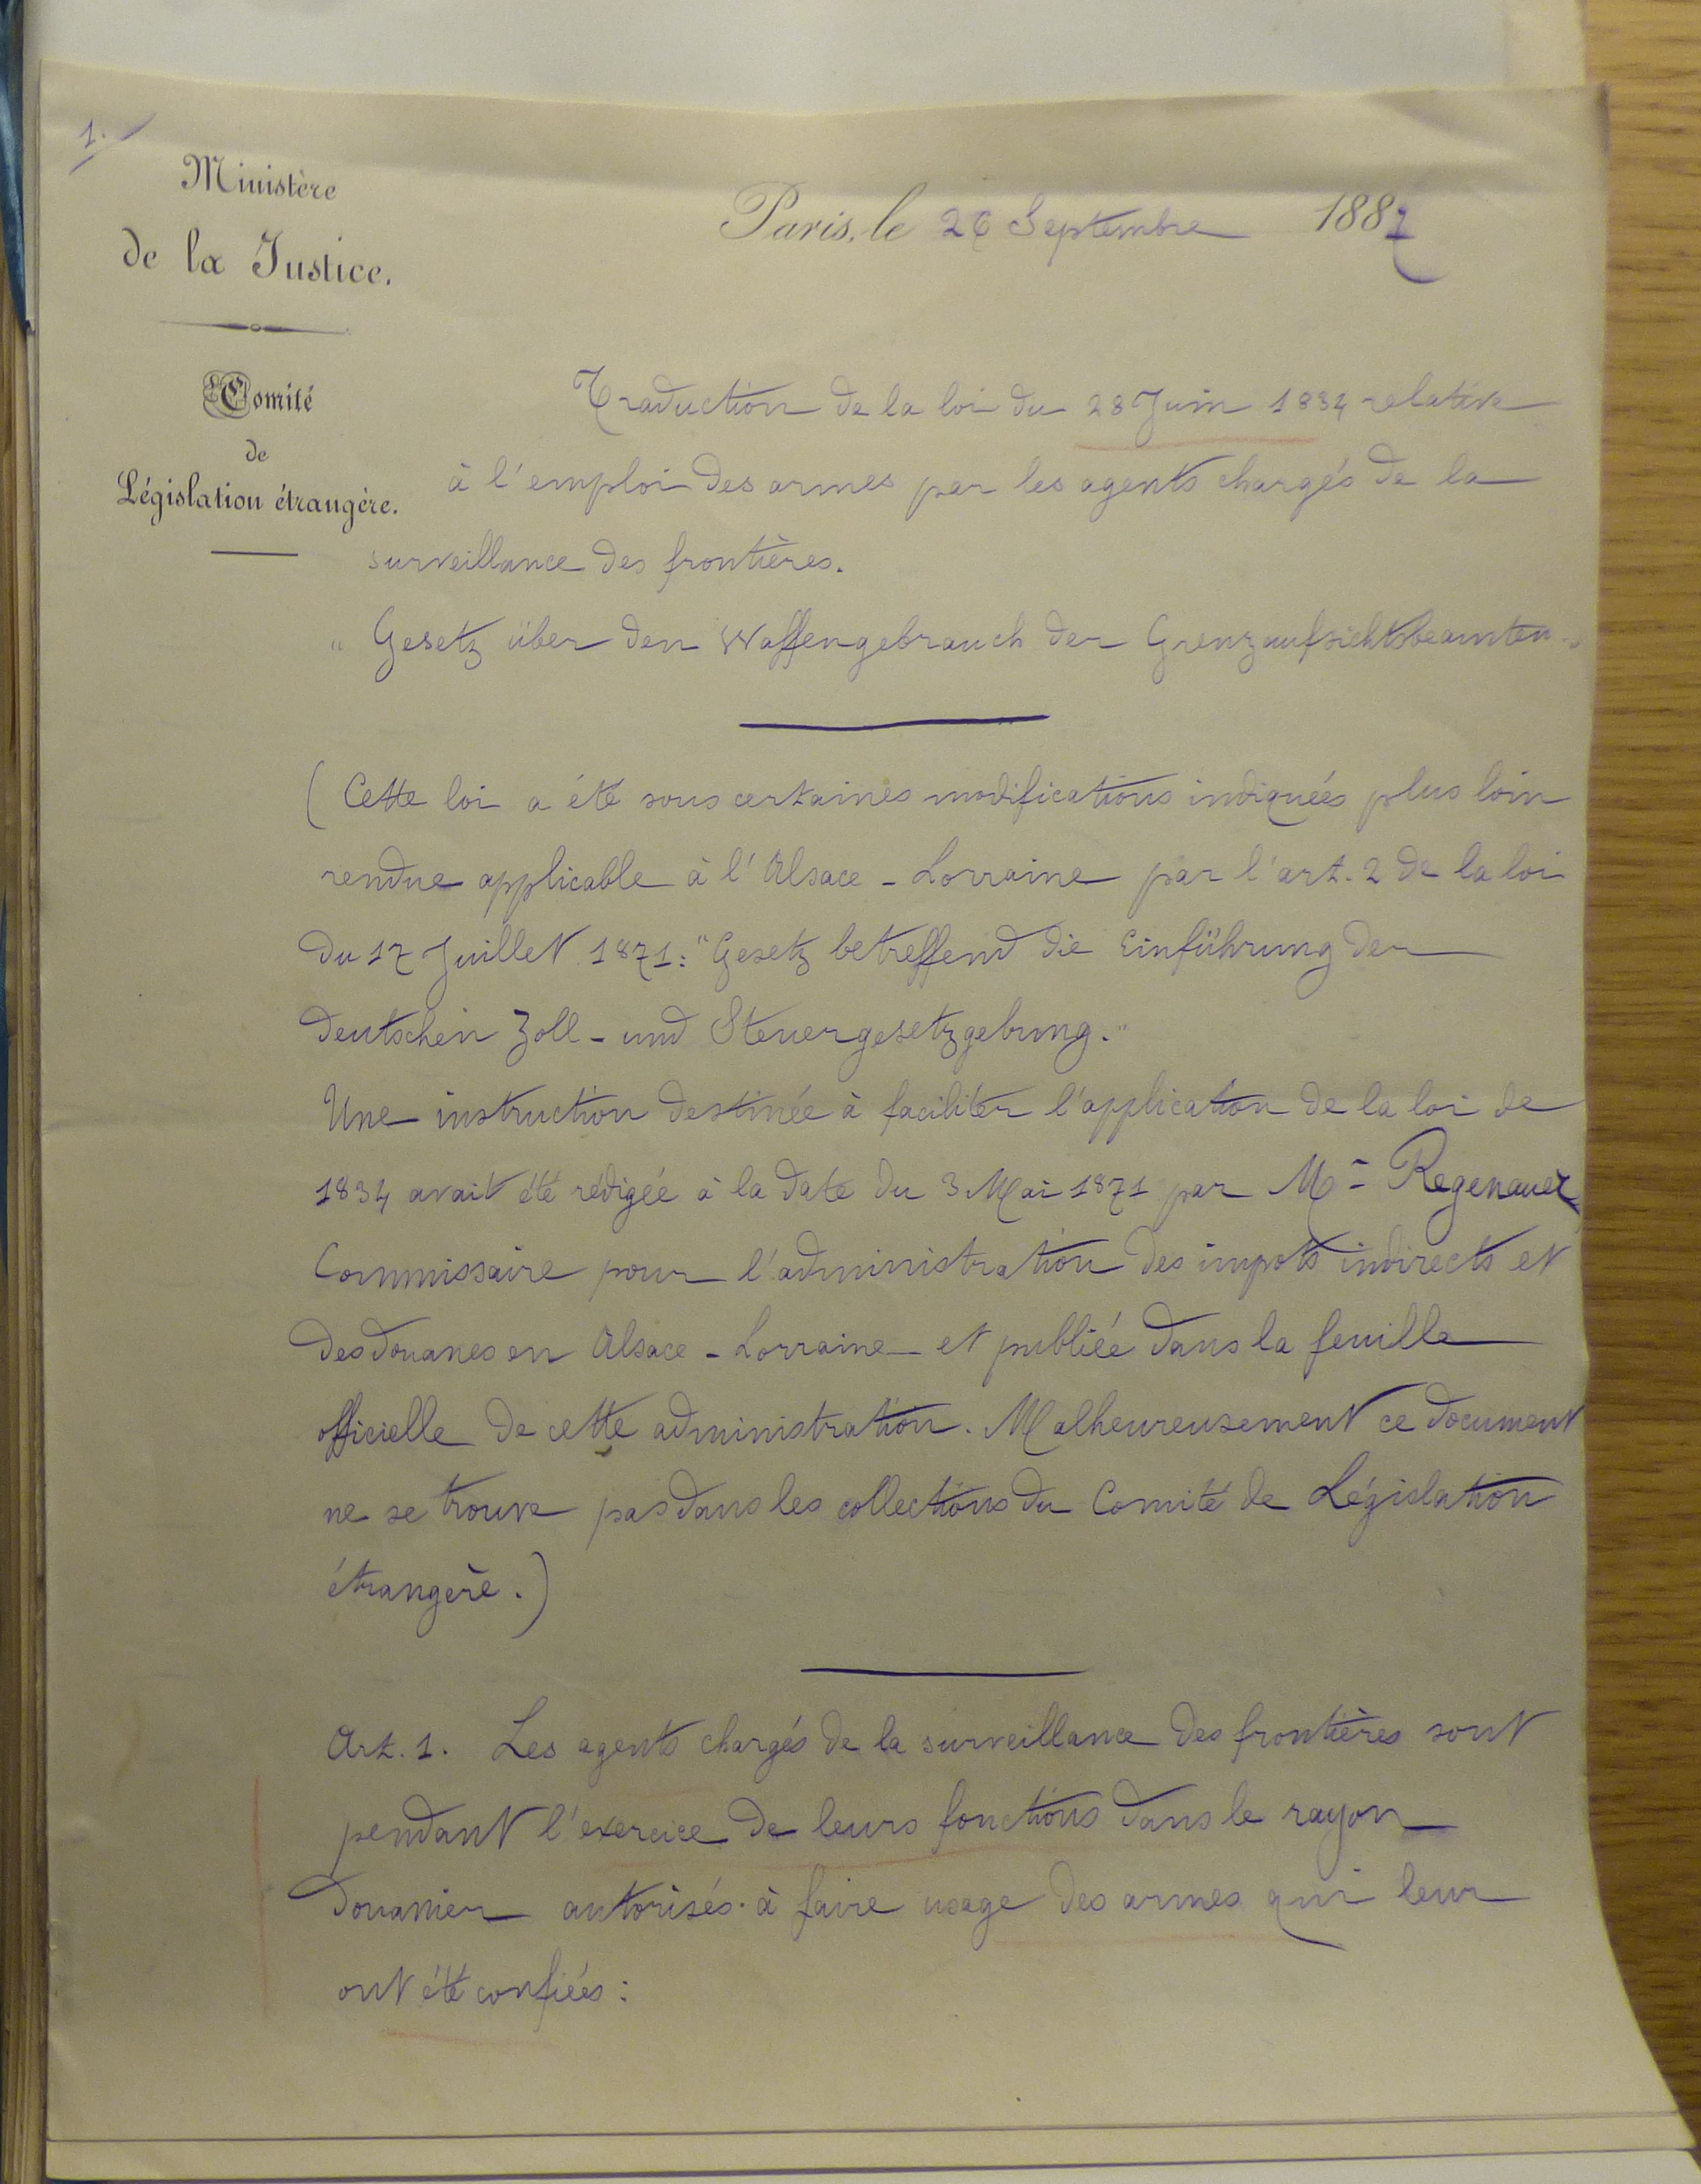 1.
Ministère
de la Justice.
Comité
de
Législation étrangère.
Paris, le 26 Septembre 1887
Traduction de la loi du 28 Juin 1834 relative
à l'emploi des armes par les agents chargés de la
surveillance des frontières.
"Gesetz über den Waffengebrauch der Grenzaufsichtsbeamten."
(Cette loi a été sous certaines modifications indiquées plus loin
rendue applicable à l'Alsace-Lorraine par l'art. 2 de la loi
du 17 Juillet 1871: "Gesetz betreffend die Einführung der
deutschen Zoll- und Steuergesetzgebung."
Une instruction destinée à faciliter l'application de la loi de
1834 avait été rédigée à la date du 3 Mai 1871 par Mr Regenauer,
Commissaire pour l'administration des impots indirects et
des douanes en Alsace-Lorraine et publiée dans la feuille
officielle de cette administration. Malheureusement ce document
ne se trouve pas dans les collections du Comité de Législation
étrangère.)
Art. 1. Les agents chargés de la surveillance des frontières sont
pendant l'exercice de leurs fonctions dans le rayon
douanier autorisés à faire usage des armes qui leur
ont été confiées: